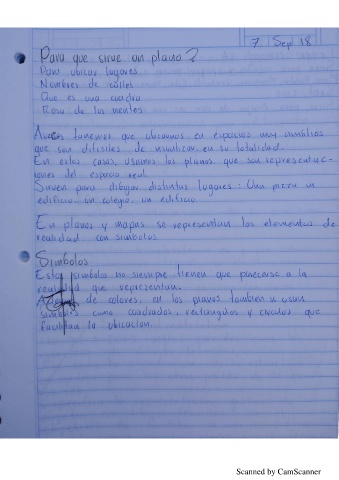 7 Sept 18
Para que sirve un plano?
Para ubicar lugares
Nombres de calles
Que es una cuadra
Rosa de los
Aveces tenemos que ubicarnos en espacios muy amplios
que son dificiles de visualizar en su totalidad.
En estos casos, usamos los planos que son representac-
iones del espacio real.
Sirven para dibujar distintos lugares: Una pieza un
edificio un colegio, un edificio.
En planos y mapas se representan los elementos de
realidad con simbolos
Simbolos
Estos simbolos no siempre tienen que parecerse a la
realidad que representan.
de colores, en los planos tambien se usan
simbolos como cuadrados, rectangulos y circulos que
facilitan la ubicacion.
Scanned by CamScanner